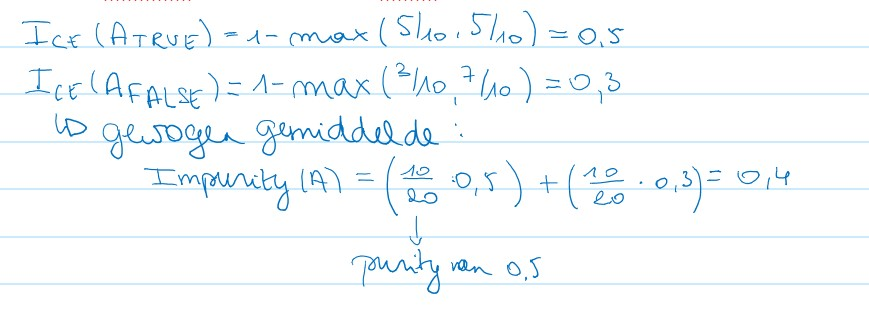 I_CE (A_TRUE) = 1 - max (5/10, 5/10) = 0,5
I_CE (A_FALSE) = 1 - max (2/10, 7/10) = 0,3
↳ gewogen gemiddelde :
Impurity (A) = (10/20 · 0,5) + (10/20 · 0,3) = 0,4
↓
purity van 0,5